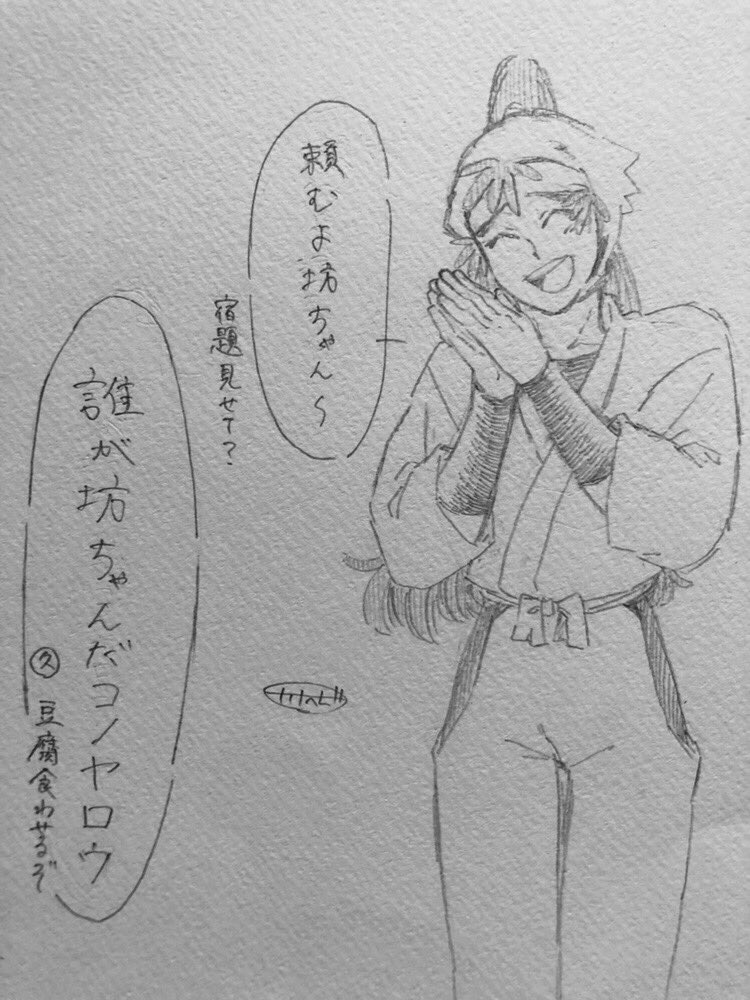 頼むよ坊ちゃん〜
宿題見せて?
誰が坊ちゃんだコノヤロウ
久 豆腐食わせるぞ